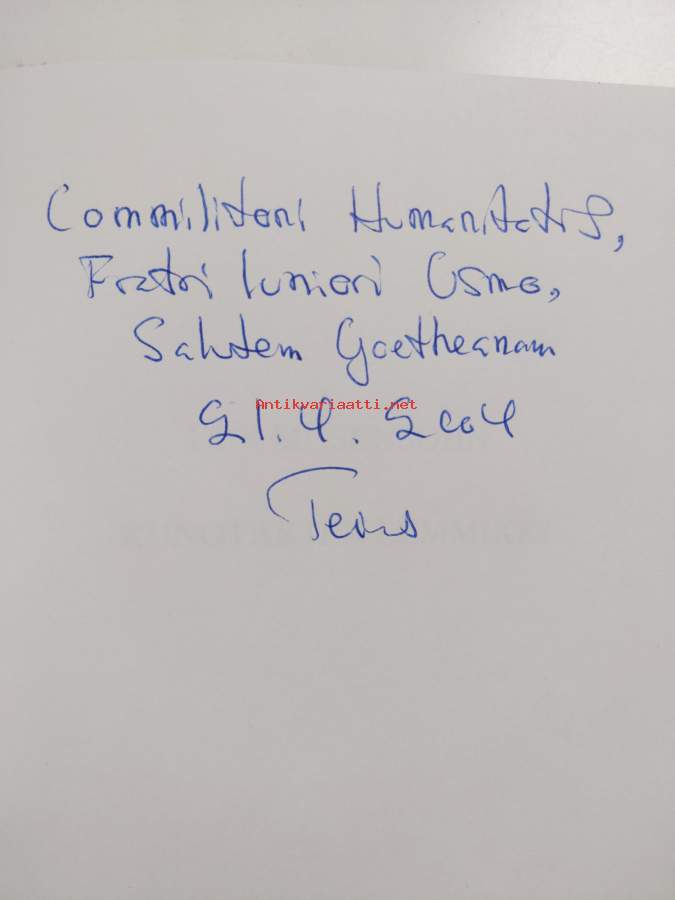 Commilitoni Humanitatis,
Fratri Iuniori Osmo,
Salutem Goetheanam
Antikvariaatti.net
21.4.2004